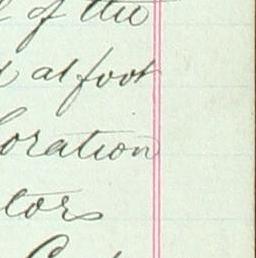 of the
at foot
oration
tors